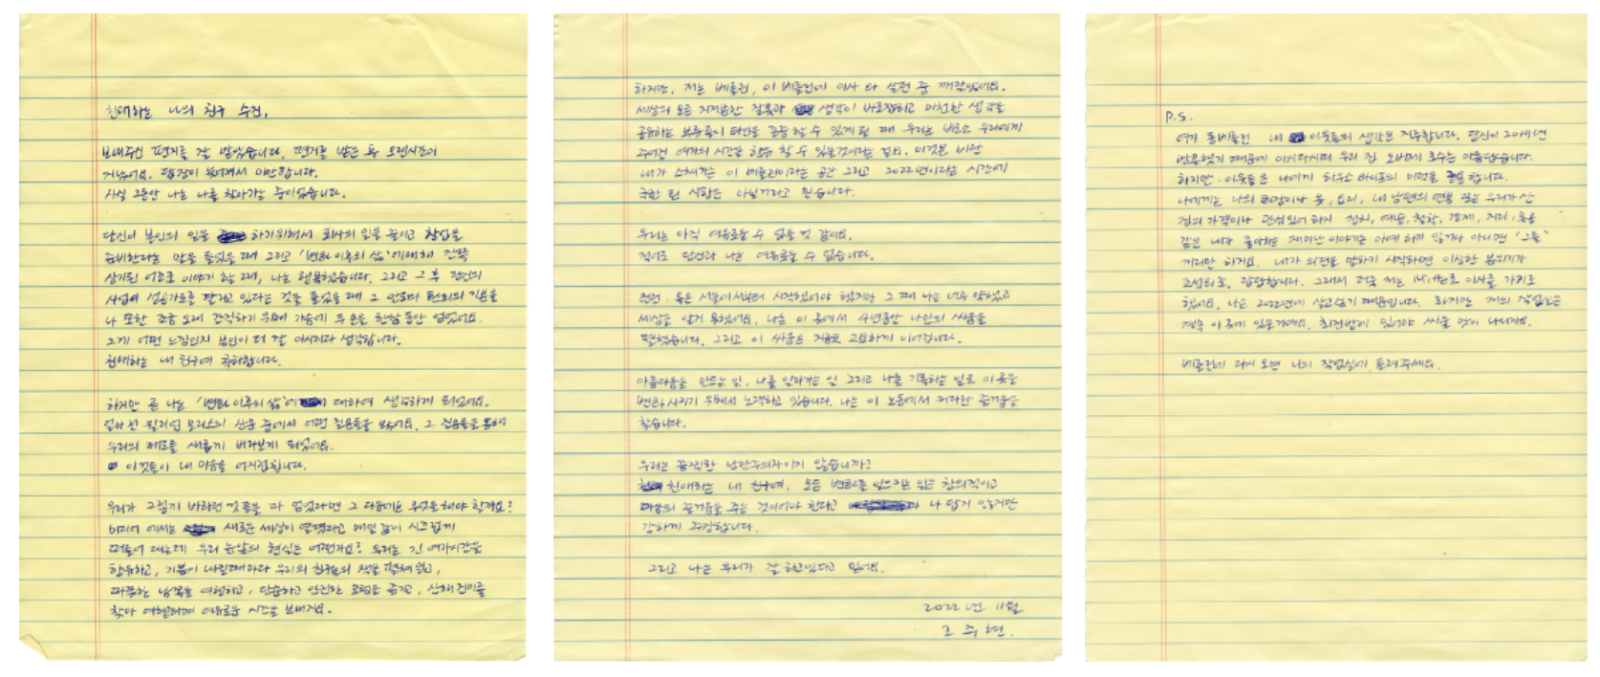 친애하는 나의 친구 수진,
보내주신 편지를 잘 받았습니다. 편지를 받은 후 오랜시간이
지났어요. 답장이 늦어져서 미안합니다.
사실 그동안 나는 나를 찾아가는 중이었습니다.
당신이 본인의 일을 하기위해서 회사의 일을 줄이고 창업을
준비한다는 말을 들었을 때 그리고 '변화 이후의 삶'에대해 잔뜩
상기된 어조로 이야기 할 때, 나는 행복했습니다. 그리고 그 후 당신의
사업이 성공가도를 달리고 있다는 것을 들었을 때 그 안도와 환희의 기분을
나 또한 조금 오래 간직하기 위해 가슴에 두 손을 한참 동안 얹었어요.
그게 어떤 느낌인지 본인이 더 잘 아시리라 생각합니다.
친애하는 내 친구여 축하합니다.
하지만 곧 나는 '변화 이후의 삶'에 대하여 생각하게 되었어요.
얼마 전 윌리엄 모리스의 산문 중에서 어떤 질문들을 보았어요. 그 질문들을 통해
우리의 태도를 새롭게 바라보게 되었어요.
이것들이 내 마음을 어지럽힙니다.
우리가 그렇게 바라던 것들을 다 얻었다면 그 다음에는 무엇을 해야 할까요?
미디어 에서는 새로운 세상이 열렸다고 매일 같이 시끄럽게
떠들어 대는데 우리 눈앞의 현실은 어떤가요? 우리는 긴 여가시간을
향유하고, 기분이 내킬때마다 우리의 친구들의 책을 펼쳐 읽고,
따뜻한 남쪽을 여행하고, 단순하고 안전한 모험을 즐기고, 산해진미를
찾아 여행하며 여유로운 시간을 보내지요.
하지만, 저는 베를린, 이 베를린에 이사 와 살던 중 깨달았어요.
세상의 모든 지저분한 질문과 생각이 바로잡히고 마땅한 생각을
공유하는 부류들이 대안을 할 수 있게 될 때 우리는 비로소 우리에게
주어진 여가의 시간을 향유 할 수 있을것이라는 걸요. 이것은 비단
내가 소개하는 이 베를린이라는 공간 그리고 2022년이라는 시간에
국한 된 사항은 아닐거라고 믿습니다.
우리는 아직 여유로울 수 없을 것 같아요.
적어도 당신과 나는 여유로울 수 없습니다.
전쟁. 혹은 서울에서부터 시작했어야 했지만 그 때 나는 너무 약했고
세상을 알지 못했어요. 나는 이 곳에서 4년동안 나만의 싸움을
펼쳤습니다. 그리고 이 싸움은 지금도 고요하게 이어집니다.
아름다움을 만드는 일, 나를 알아가는 일 그리고 나를 기록하는 일로 이 곳을
변화 시키기 위해서 노력하고 있습니다. 나는 이 노동에서 커다란 즐거움을
찾습니다.
우리는 끔찍한 낭만주의자이지 않습니까?
친애하는 내 친구여, 모든 변화를 일으키는 일은 창의적이고
마음의 즐거움을 주는 것이어야 한다고 나 답지 않지만
강하게 주장합니다.
그리고 나는 우리가 잘 하고있다고 믿어요.
2022년 11월
조 주 현.
P.S.
여기 동베를린 내 이웃들의 생각은 지루합니다. 당신이 2019년
방문했기 때문에 아시다시피 우리 집 오브제 호수는 아름답습니다.
하지만 이웃들은 나에게 하우스 와이프의 미덕을 합니다.
나에게는 나의 희망이나 꿈, 요리, 내 남편의 연봉 또는 우리가 산
집의 가격이나 관심있어 하지 정치, 예술, 철학, 경제, 지리, 농공
같은 내가 좋아하는 재미난 이야기는 아예 하지 않거나 아니면 '그들'
끼리만 하지요. 내가 의견을 말하기 시작하면 이상한 분위기가
조성되죠, 답답합니다. 그래서 저는 로 이사를 가기로
했어요. 나는 2022년에 살고싶기 때문입니다. 하지만 저의 작업실은
계속 이 곳에 있을거예요. 최전방에 있어야 싸울 맛이 나니까요.
베를린에 다시 오면 나의 작업실에 들려주세요.